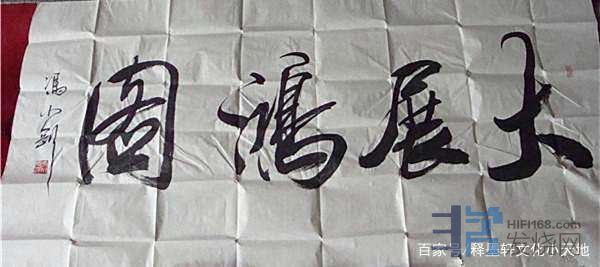 大展鸿图
冯小剑
HIFI168.com
发烧网
百家号/释墨轩文化小天地